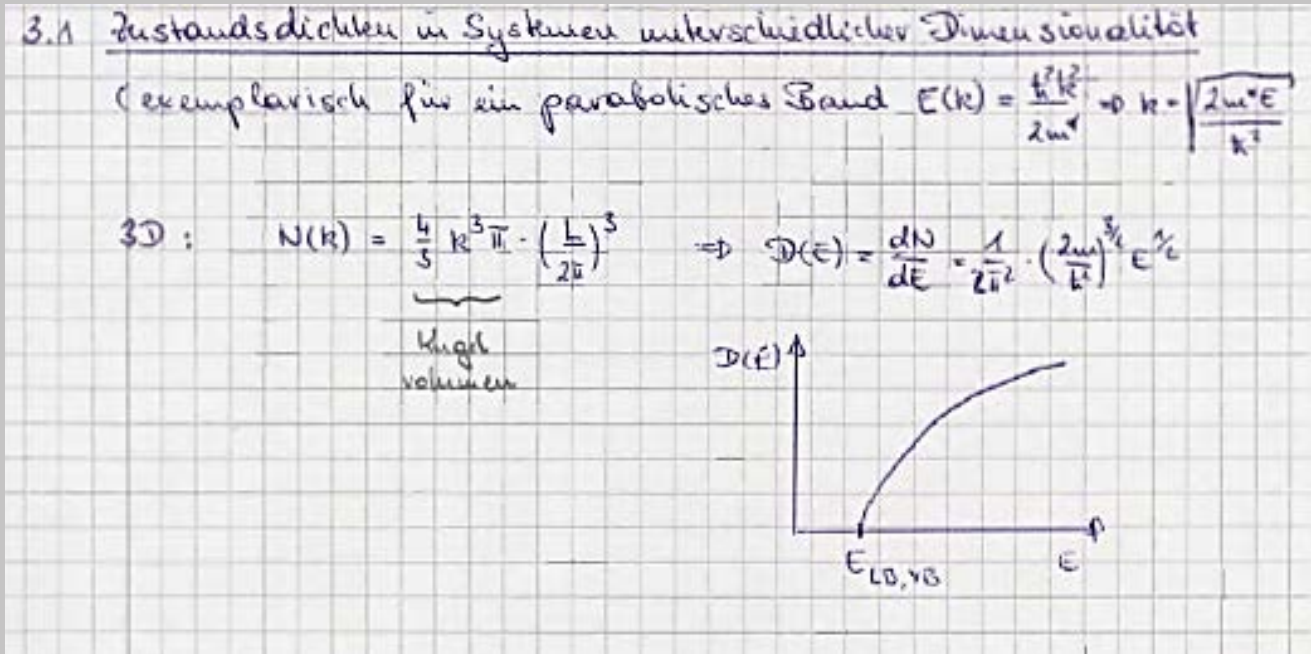 3.1 Zustandsdichten in Systemen unterschiedlicher Dimensionalität
(exemplarisch für ein parabolisches Band E(k) = ħ²k²/2m* ⇒ k = √(2m*E/ħ²)
3D: N(k) = 4/3 k³π · (L/2π)³ ⇒ D(E) = dN/dE = 1/2π² · (2m/ħ²)^3/2 E^1/2
Kugel
volumen
D(E)
E LB,VB E